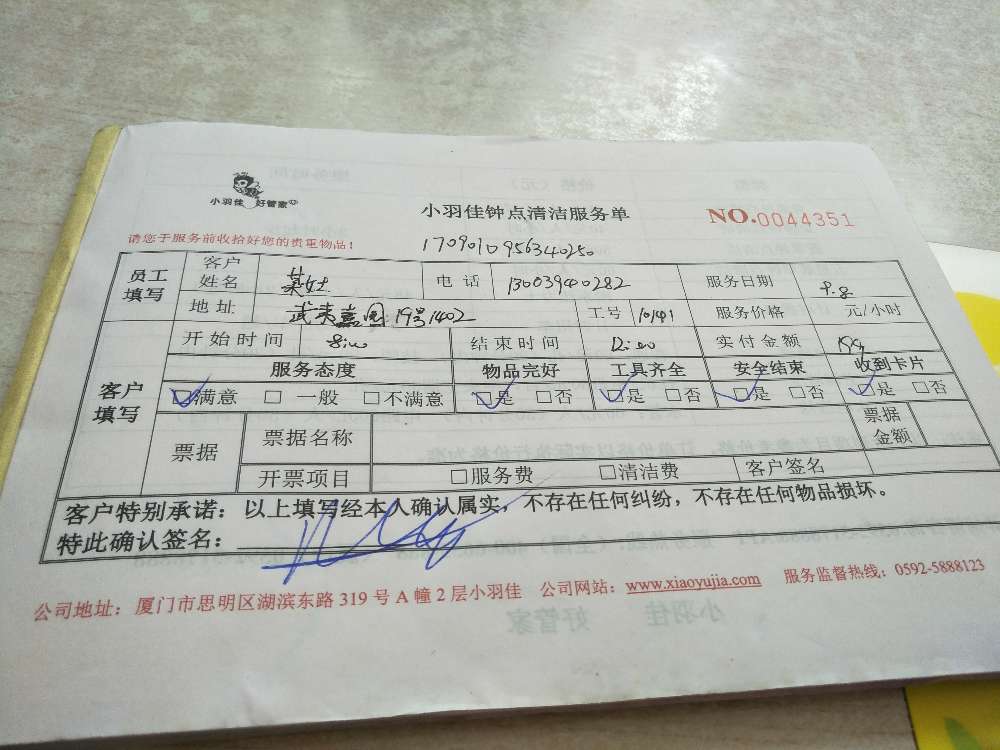 小羽佳 好管家
小羽佳钟点清洁服务单
NO.0044351
请您于服务前收拾好您的贵重物品!
1709010956340250
员工填写 客户姓名 电话 13003940282 服务日期 9.8
地址 武夷嘉园19号1402 工号 10141 服务价格 元/小时
开始时间 结束时间 实付金额
客户填写 服务态度 物品完好 工具齐全 安全结束 收到卡片
☑满意 □ 一般 □不满意 ☑是 □否 ☑是 □否 ☑是 □否 ☑是 □否
票据 票据名称 票据金额
开票项目 □服务费 □清洁费 客户签名
客户特别承诺:以上填写经本人确认属实,不存在任何纠纷,不存在任何物品损坏。
特此确认签名:
公司地址:厦门市思明区湖滨东路 319 号 A 幢 2 层小羽佳 公司网站:www.xiaoyujia.com 服务监督热线:0592-5888123